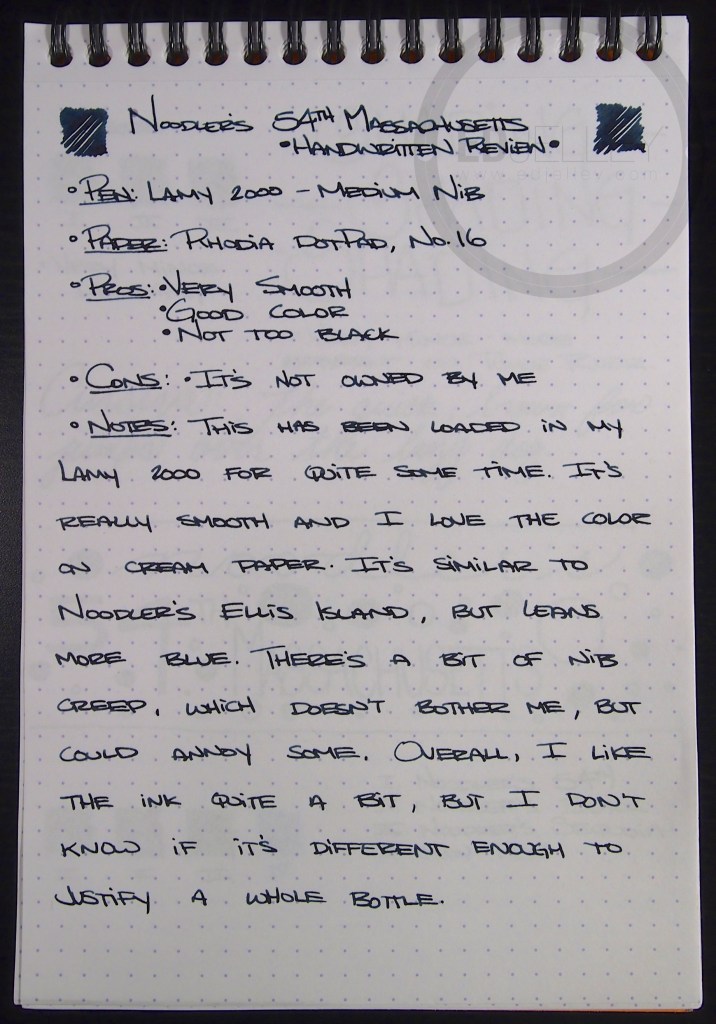 Noodler's 54th Massachusetts
• Handwritten Review •
• Pen: Lamy 2000 – Medium Nib
• Paper: Rhodia DotPad, No. 16
• Pros: • Very Smooth
• Good Color
• Not Too Black
• Cons: • It's not owned by me
• Notes: This has been loaded in my
Lamy 2000 for quite some time. It's
really smooth and I love the color
on cream paper. It's similar to
Noodler's Ellis Island, but leans
more blue. There's a bit of nib
creep, which doesn't bother me, but
could annoy some. Overall, I like
the ink quite a bit, but I don't
know if it's different enough to
justify a whole bottle.